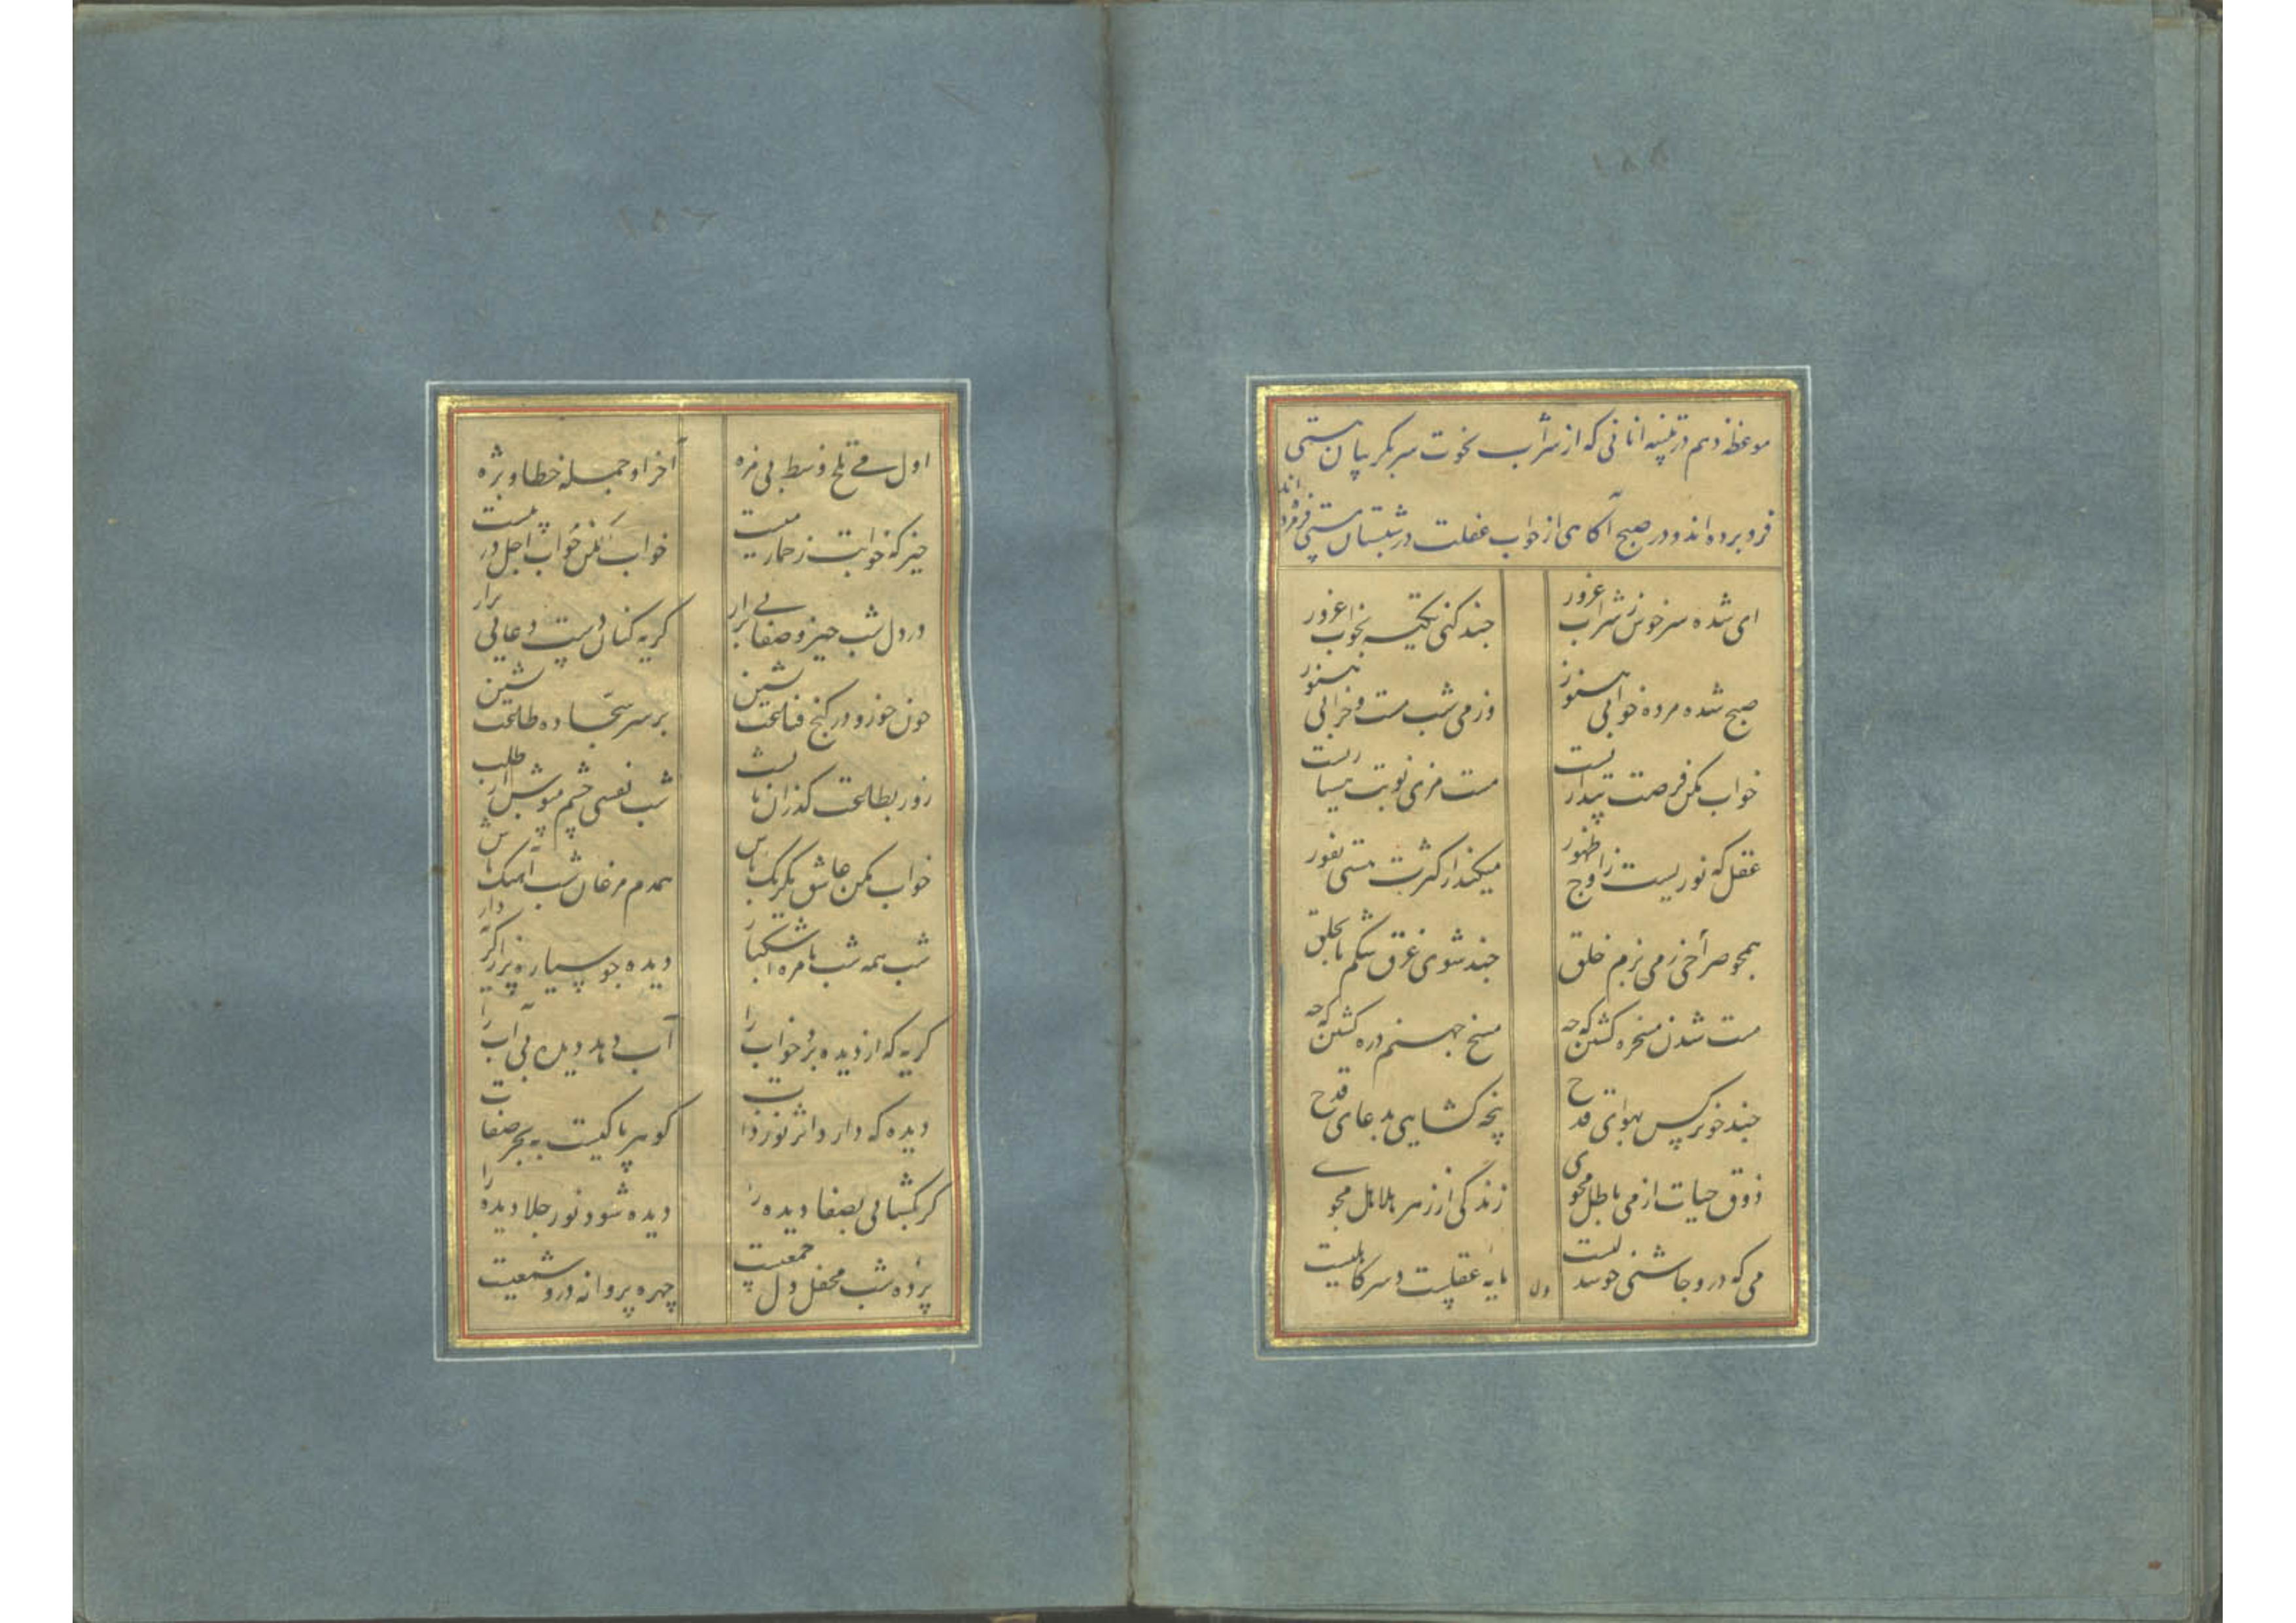 موعظه دهم در تنبیه آنانی که از شراب نخوت سر بگریبان مستی
فرو برده اند و در صبح آگاهی از خواب غفلت در شبستان مستی
ای شده سرخوش ز شراب غرور چند کنی تکیه بخواب غرور
صبح شده مرده خوابی هنوز وز می شب مست و خرابی هنوز
خواب مکن فرصت بیداریست مست مزی نوبت هشیاریست
عقل که نوریست ز اوج ظهور میکند از کثرت مستی نفور
همچو صراحی ز می بزم خلق چند شوی غرق شکم تا بحلق
مست شدن مسخره کشتن که چه مسخ جهنم دره کشتن که چه
چند چو نرکس بهوای قدح پنجه کشایی بدعای قدح
ذوق حیات از می باطل مجوی زندگی از زهر هلاهل مجوی
می که درو چاشنی خوشدلیست مایه عقلیست و سر کاهلیست
ول
اول می تلخ وسط بی مزه آخر او جمله خطا و بزه
خیز که خوابت ز خمار میست خواب مکن خواب اجل در پیست
در دل شب خیز و صفایی برار گریه کنان دست دعایی برار
چون خور و در کنج قناعت نشین بر سر سجاده طاعت نشین
روز بطاعت گذران تا بشب شب نفسی چشم مپوش از طلب
خواب مکن عاشق یکرنگ باش همدم مرغان شب آهنگ باش
شب همه شب با مژه اشکبار دیده چو سیاره
گریه که از دیده برد خواب را آب دهد دیده بی آب را
دیده که دارد اثر نور ذات گوهر پاکیست به بحر صفات
گر بگشائی بصفا دیده را دیده شود نور جلا دیده را
پرده شب محفل دل جمعیست چهره پروانه درو شمعیست